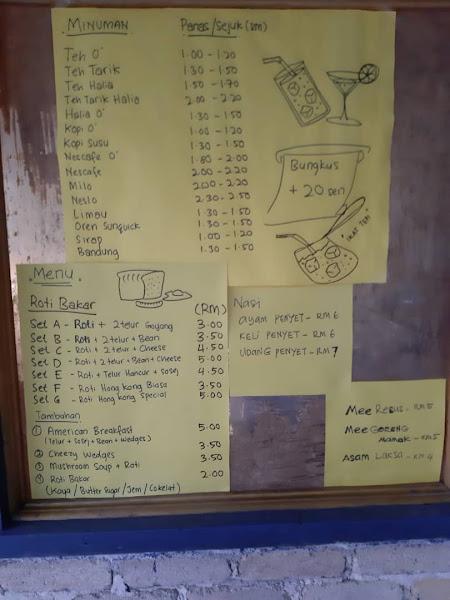 MINUMAN Panas/Sejuk (RM)
Teh O' 1.00 - 1.20
Teh Tarik 1.30 - 1.50
Teh Halia 1.50 - 1.70
Teh Tarik Halia 2.00 - 2.20
Halia O' 1.30 - 1.50
Kopi O' 1.00 - 1.20
Kopi Susu 1.30 - 1.50
Nescafe O' 1.80 - 2.00
Nescafe 2.00 - 2.20
Milo 2.00 - 2.20
Neslo 2.30 - 2.50
Limau 1.30 - 1.50
Oren Sunquick 1.30 - 1.50
Sirap 1.00 - 1.20
Bandung 1.30 - 1.50
Bungkus
+ 20 sen
"IKAT TEPI"
Menu
Roti Bakar (RM)
Set A - Roti + 2 telur Goyang 3.00
Set B - Roti + 2 telur + Bean 3.50
Set C - Roti + 2 telur + Cheese 4.50
Set D - Roti + 2 telur + Bean + Cheese 5.00
Set E - Roti + Telur Hancur + Sosej 4.50
Set F - Roti Hong Kong Biasa 3.50
Set G - Roti Hong Kong Special 5.00
Tambahan
① American Breakfast 5.00
(Telur + Sosej + Bean + Wedges)
② Cheezy Wedges 3.50
③ Mushroom Soup + Roti 3.50
④ Roti Bakar 2.00
(Kaya / Butter Sugar / Jem / Cokelat)
Nasi
AYAM PENYET - RM 6
KELI PENYET - RM 6
UDANG PENYET - RM 7
MEE REBUS - RM 5
MEE GORENG
MAMAK - RM 5
ASAM LAKSA - RM 4